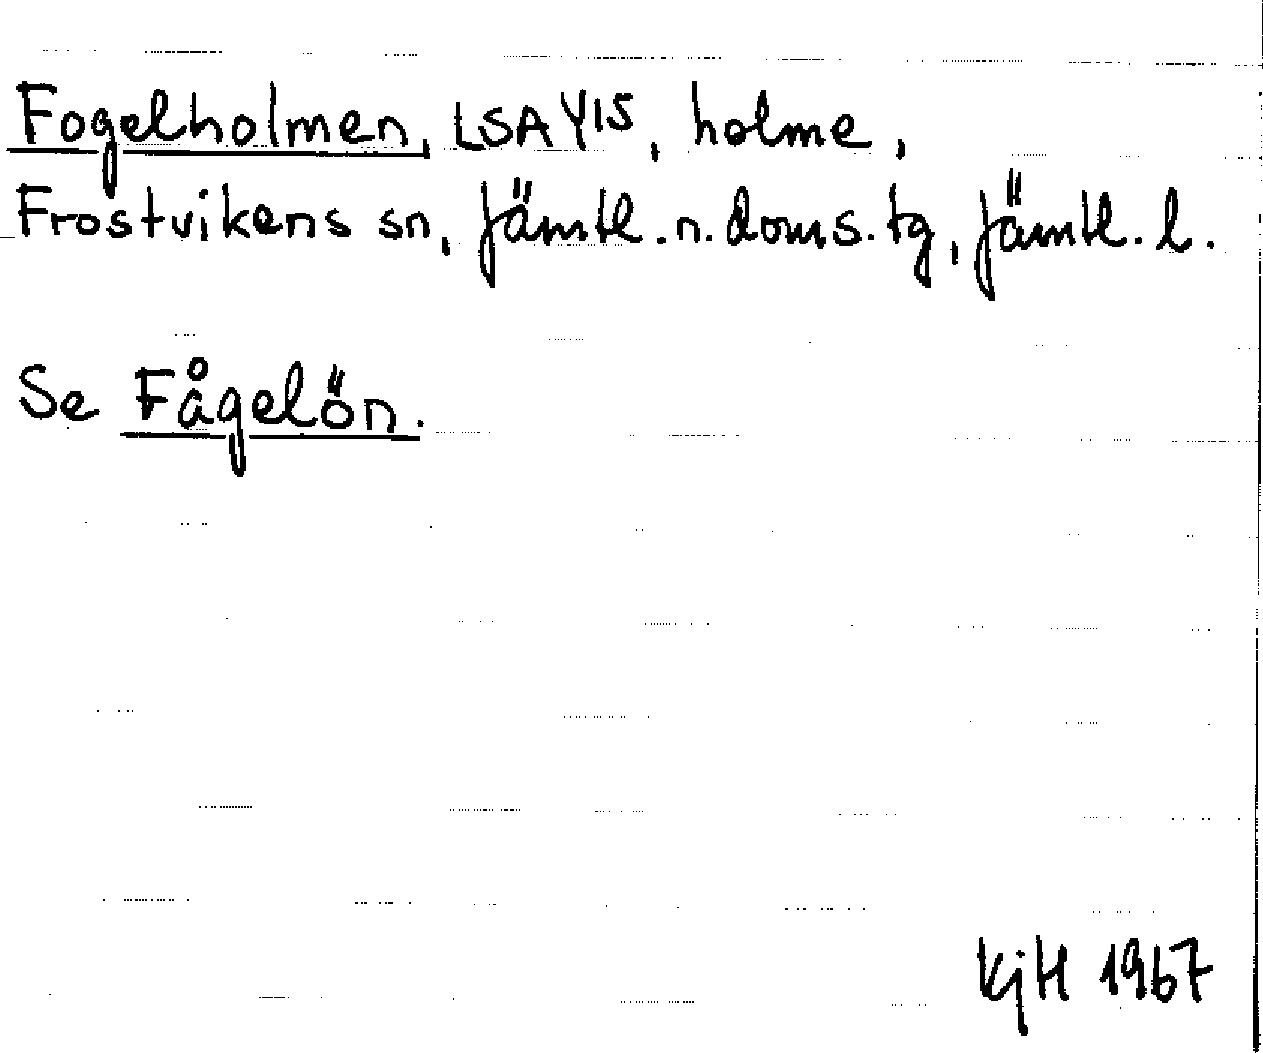 Fogelholmen, LSA Y15, holme,
Frostvikens sn, Jämtl. n. doms. tg, Jämtl. l.
Se Fågelön.
KjH 1967